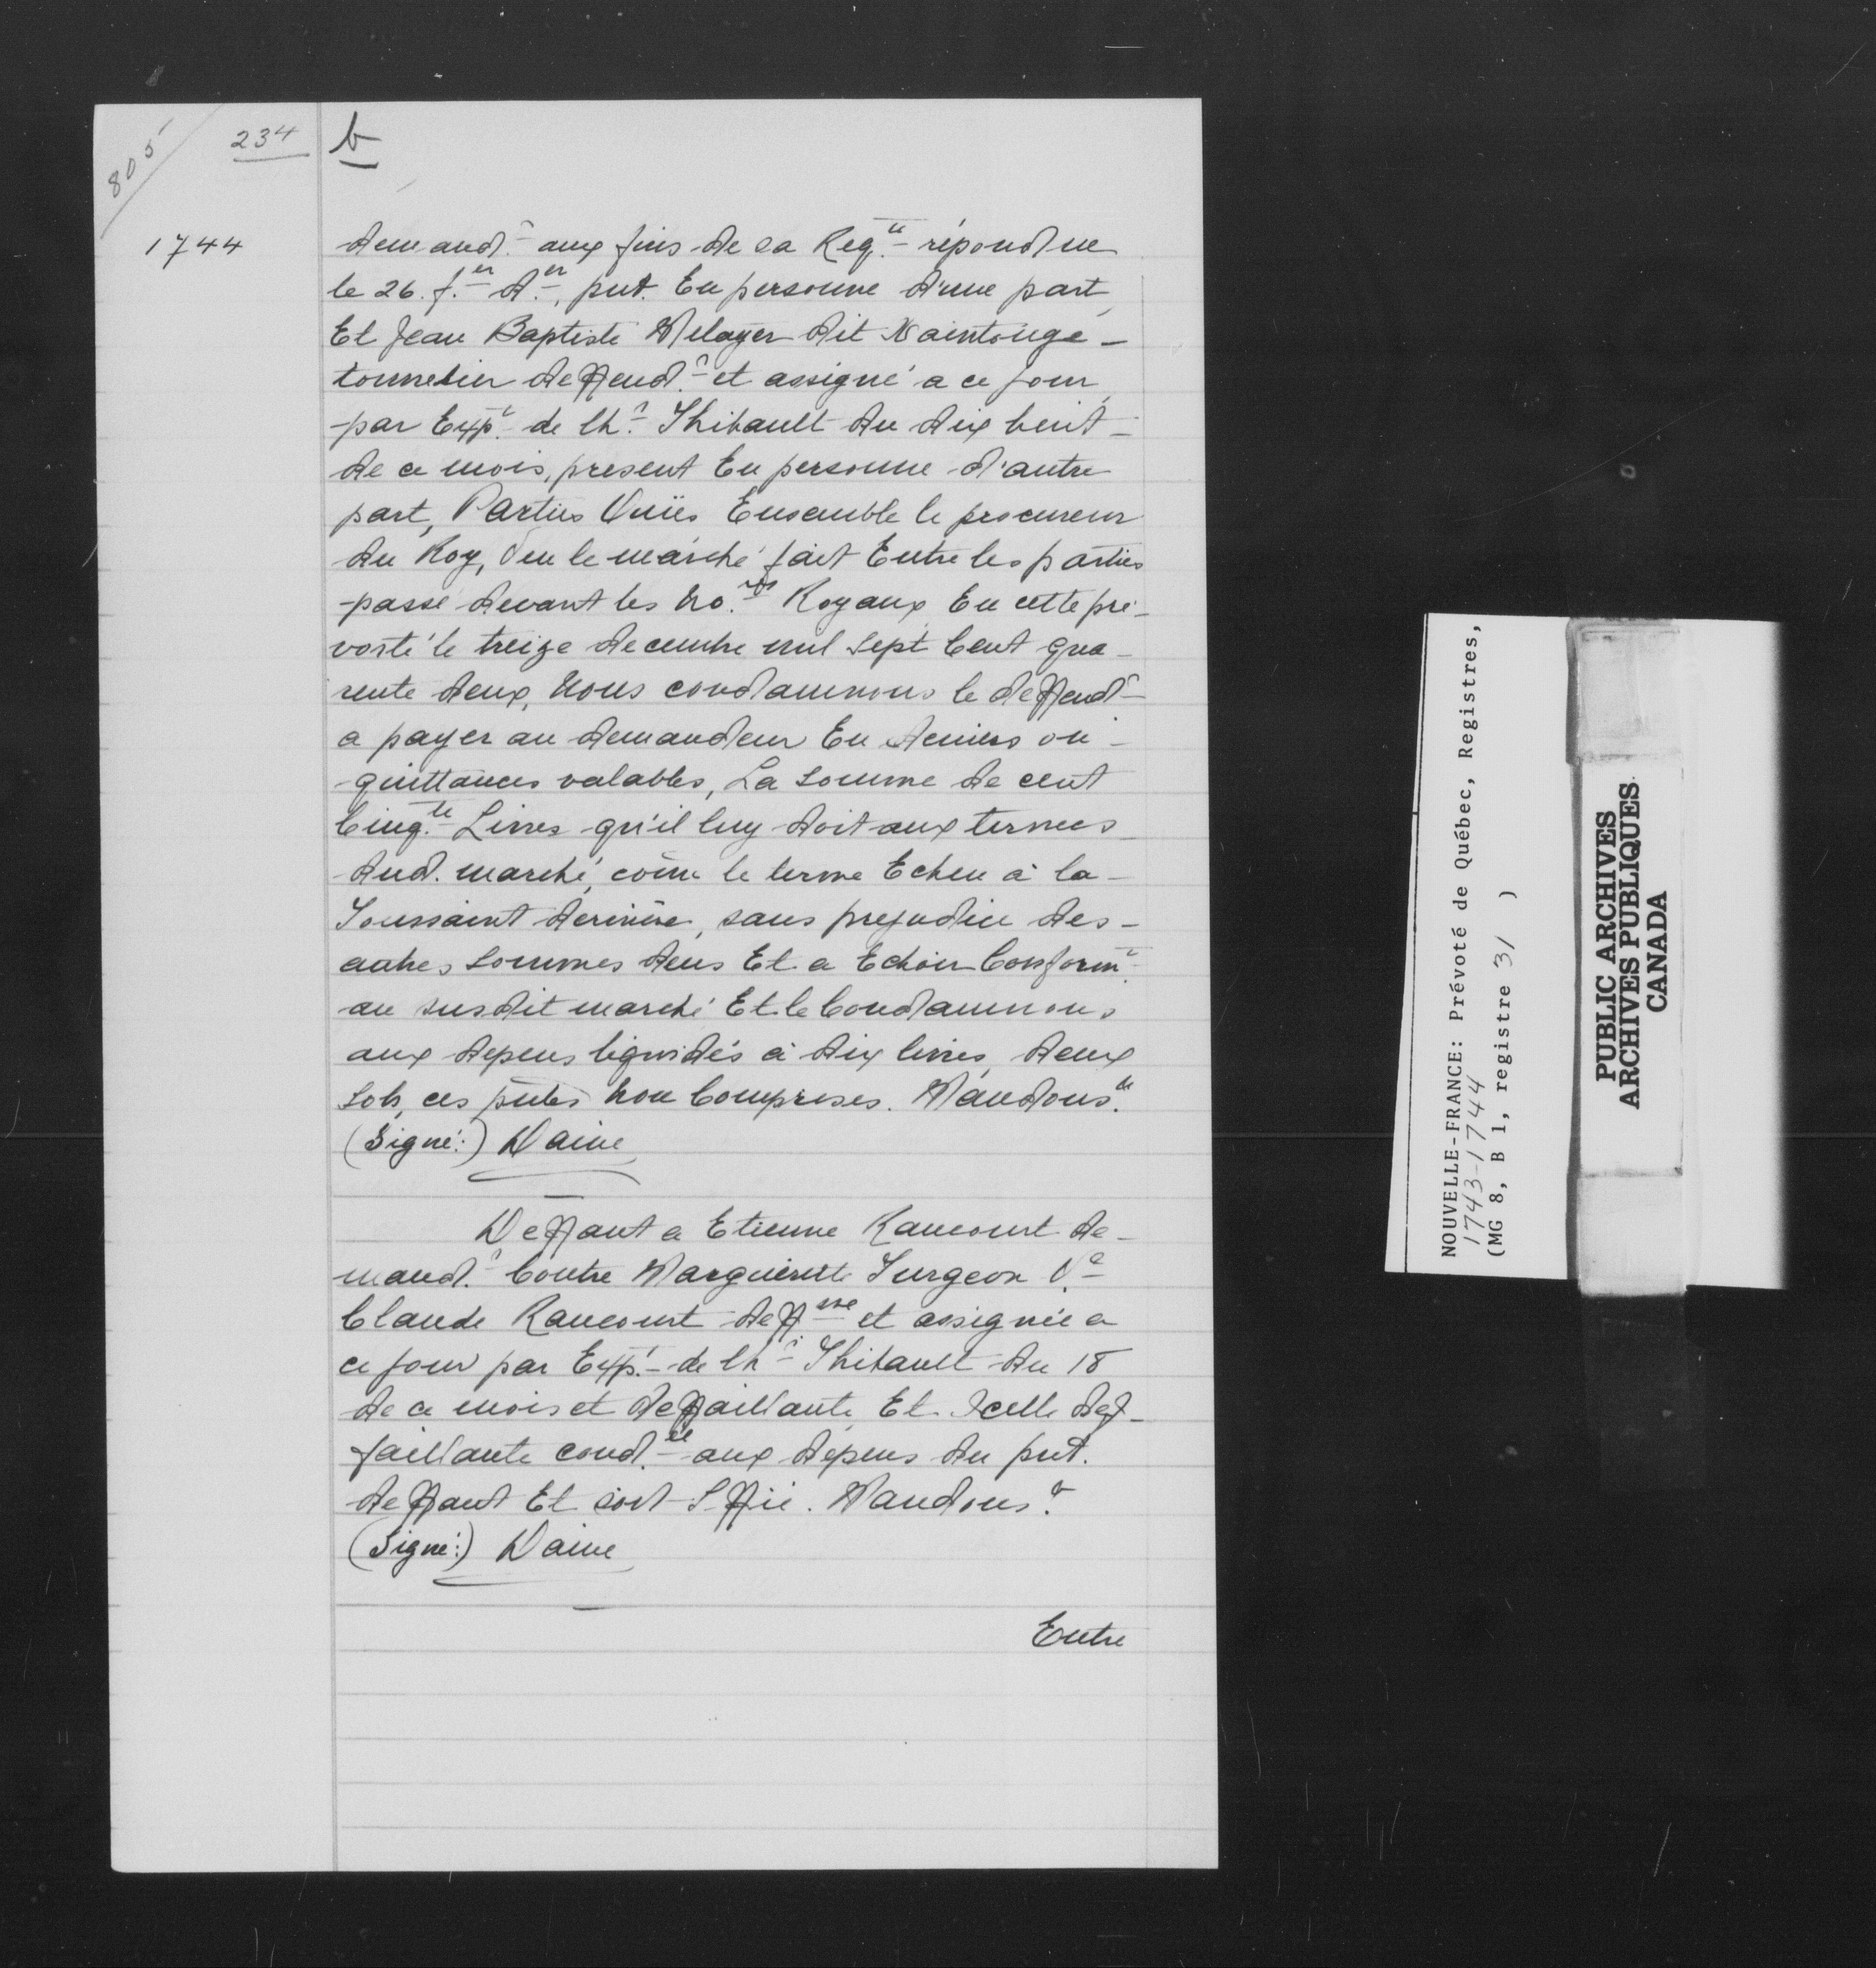 805
234 b
1744
demand.r aux fins de sa Reqte répondue
le 26. f.er d.er, pnt. En personne d'une part,
Et Jean Baptiste Melayer dit Xaintonge -
tonnelier deffend.r et assigné a ce jour
par Exp.t de lh.r Thibault du dix huit -
de ce mois, present En personne d'autre
part, Parties Ouïes Ensemble le procureur
du Roy, Veu le marché fait Entre les parties
passé devant les No.res Royaux En cette pré-
vosté le treize decembre mil Sept Cent qua-
rente deux, Nous condamnons le deffend.r
a payer au demandeur En deniers ou -
quittances valables, La Somme de cent
Cinq.te Livres qu'il luy doit aux termes
dud. marché, come le terme Echeu à la -
Toussaint derniere, sans prejudice des -
autres Sommes deues Et a Echoir Conform.t
au susdit marché Et le Condamnons
aux depens liquidés à dix livres, deux
Sols, ces pntes Non Comprises. Mandons &
(Signé:) Daine
Deffaut a Etienne Rancourt de-
mand.r Contre Marguerite Turgeon V.e
Claude Rancourt deff.sse et assignée a
ce jour par Exp.t de lh.r Thibault du 18
de ce mois et deffaillante, Et Icelle def-
faillante cond.ée aux dépens du pnt.
deffaut Et soit Sffié. Mandons &
(Signé:) Daine
Entre
NOUVELLE-FRANCE: Prévoté de Québec, Registres,
1743-1744
(MG 8, B 1, registre 31 )
PUBLIC ARCHIVES
ARCHIVES PUBLIQUES
CANADA